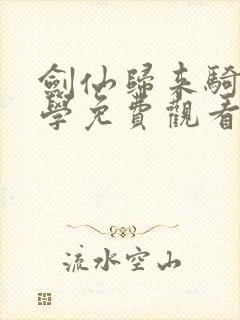 劍仙歸來騎
學免費觀看
流水空山